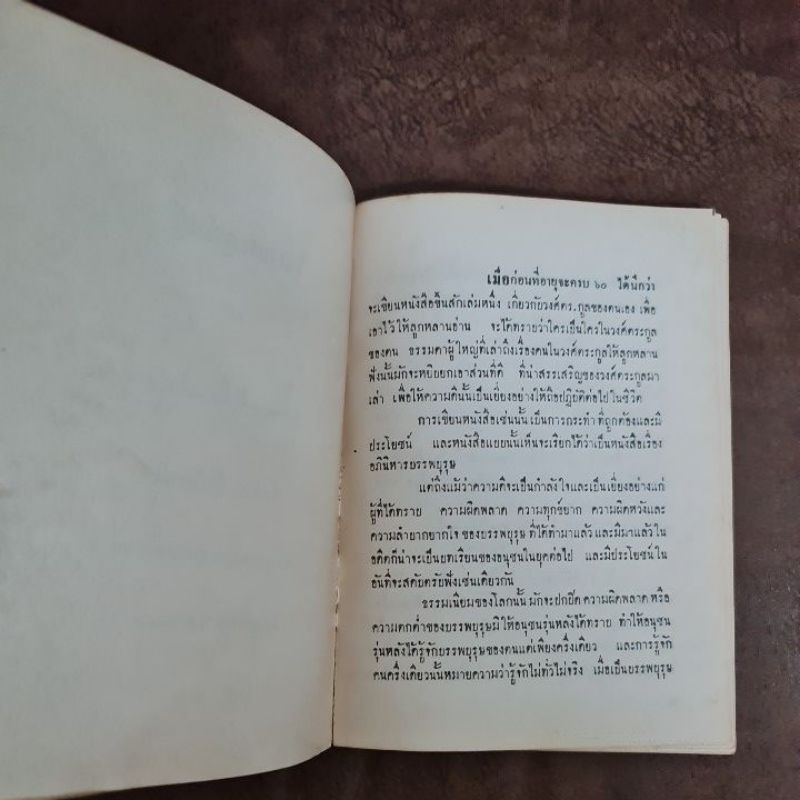 เมื่อก่อนที่อายุจะครบ ๖๐ ได้นึกว่า
จะเขียนหนังสือขึ้นสักเล่มหนึ่ง เกี่ยวกับวงศ์ตระกูลของตนเอง เพื่อ
เอาไว้ให้ลูกหลานอ่าน จะได้ทราบว่าใครเป็นใครในวงศ์ตระกูล
ของตน ธรรมดาผู้ใหญ่ที่เล่าถึงเรื่องคนในวงศ์ตระกูลให้ลูกหลาน
ฟังนั้นมักจะหยิบยกเอาส่วนที่ดี ที่น่าสรรเสริญของวงศ์ตระกูลมา
เล่า เพื่อให้ความดีนั้นเป็นเยี่ยงอย่างให้ถือปฏิบัติต่อไปในชีวิต
การเขียนหนังสือเช่นนั้นเป็นการกระทำที่ถูกต้องและมี
ประโยชน์ และหนังสือแบบนั้นเห็นจะเรียกได้ว่าเป็นหนังสือเรื่อง
อภินิหารบรรพบุรุษ
แต่ถึงแม้ว่าความดีจะเป็นกำลังใจและเป็นเยี่ยงอย่างแก่
ผู้ที่ได้ทราบ ความผิดพลาด ความทุกข์ยาก ความผิดหวังและ
ความลำบากยากใจ ของบรรพบุรุษ ที่ได้ทำมาแล้ว และมีมาแล้วใน
อดีตก็น่าจะเป็นบทเรียนของอนุชนในยุคต่อไป และมีประโยชน์ใน
อันที่จะสดับตรับฟังเช่นเดียวกัน
ธรรมเนียมของโลกนั้น มักจะปกปิด ความผิดพลาด หรือ
ความตกต่ำของบรรพบุรุษมิให้อนุชนรุ่นหลังได้ทราบ ทำให้อนุชน
รุ่นหลังได้รู้จักบรรพบุรุษของตนแต่เพียงครึ่งเดียว และการรู้จัก
คนครึ่งเดียวนั้นหมายความว่ารู้จักไม่ทั่วไม่จริง เมื่อเป็นบรรพบุรุษ